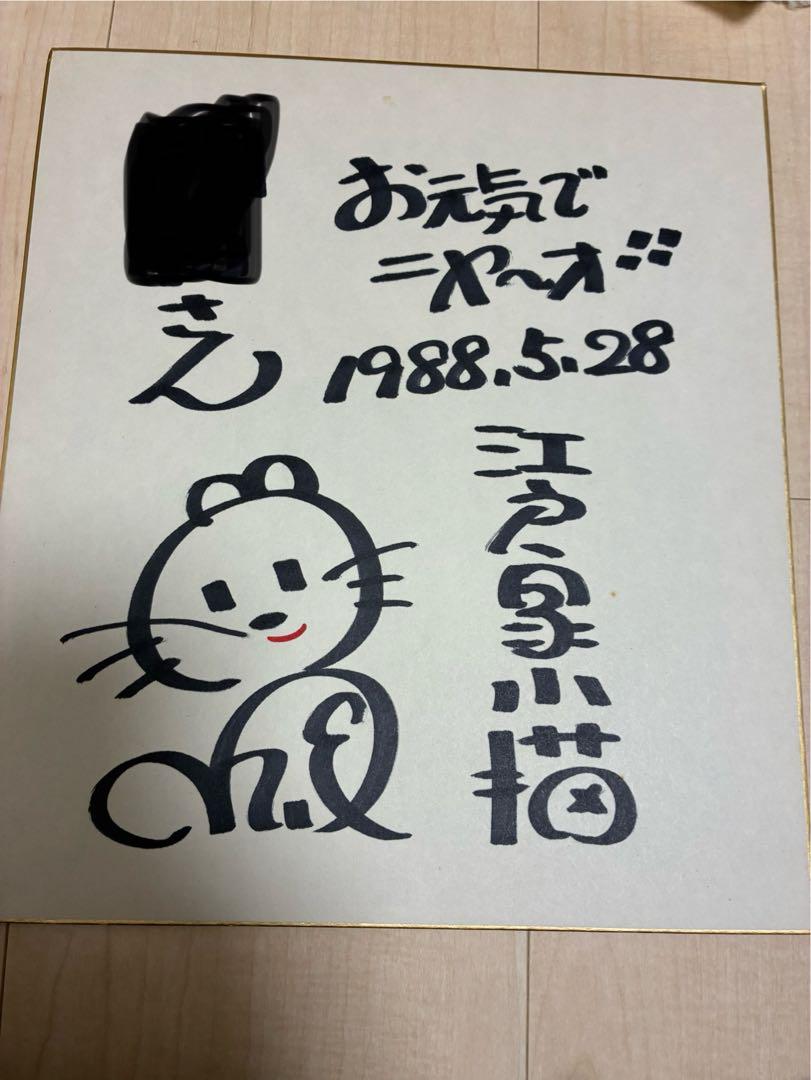 さん
お元気で
ニャ〜オ
1988.5.28
江戸家小猫